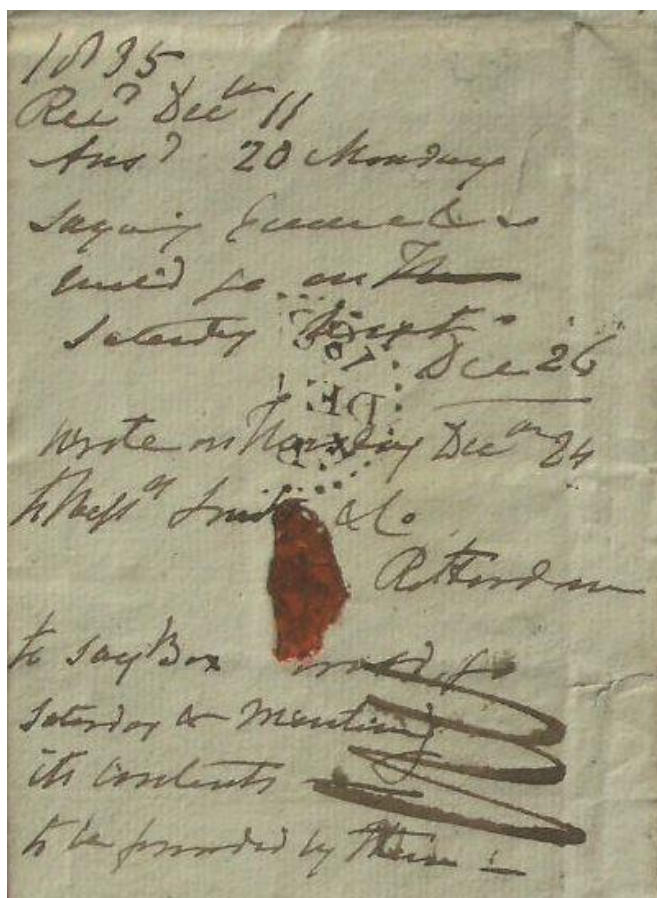 1835
Recd Decr 11
Ansd 20 Monday
saying
would go on
Saturday next
Dec 26
wrote on Thursday Decr 24
to Messrs Smith & Co
Rotterdam
to say Box would go
Saturday & Mention
its contents
to be forwarded by them